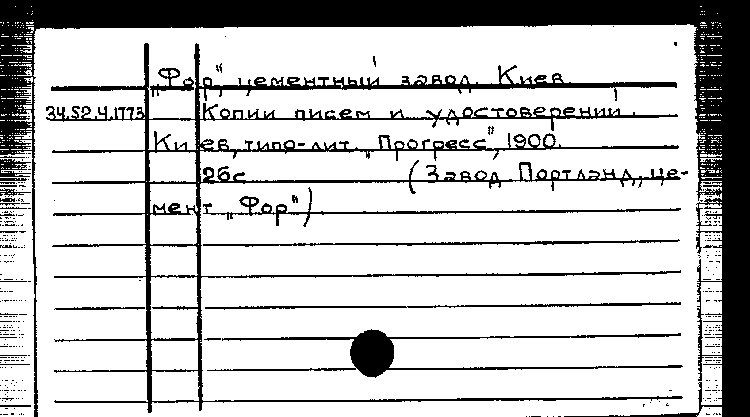 „Фор“, цементный завод. Киев
34.52.4.1773 Копии писем и удостоверений.
Киев, типо-лит. „Прогресс“, 1900.
26с (Завод Портланд, це-
мент „Фор“)